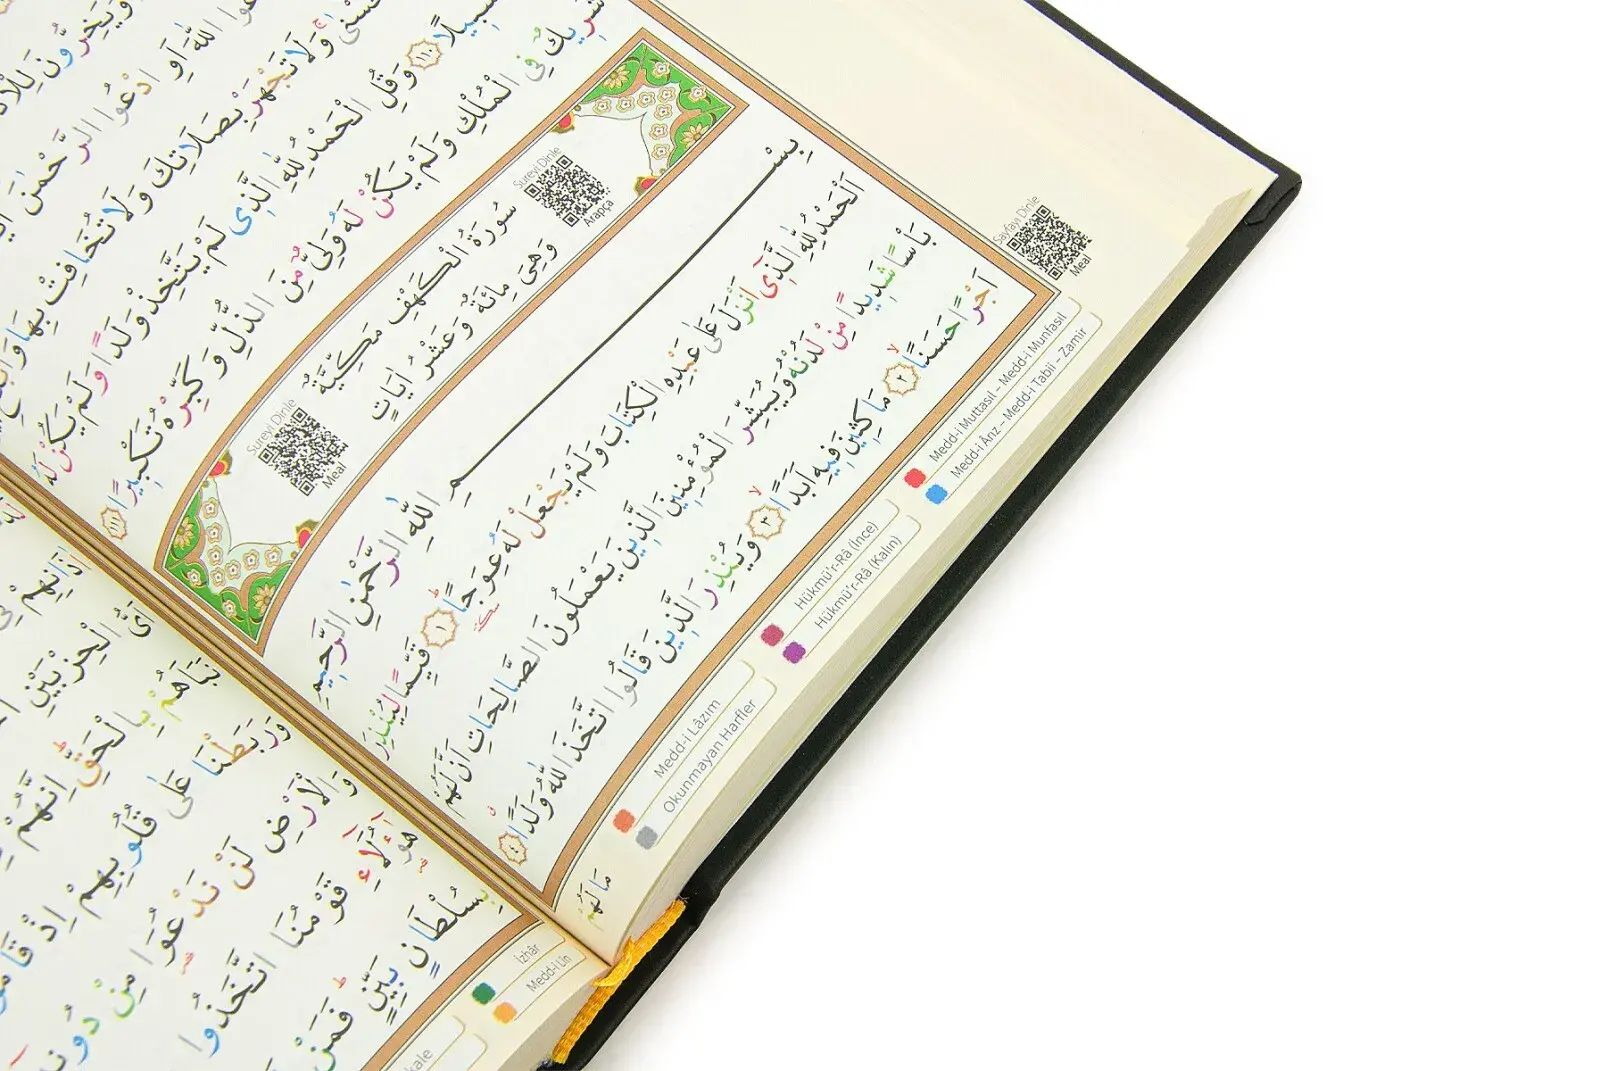 وَيَخِرُّونَ
اللّٰهَ اَوِ ادْعُوا الرَّحْمٰنَ
وَلَا تَجْهَرْ بِصَلَاتِكَ وَلَا تُخَافِتْ بِهَا وَابْتَغِ
سَبِيلًا ﴿١١٠﴾ وَقُلِ الْحَمْدُ لِلّٰهِ الَّذِى لَمْ يَتَّخِذْ وَلَدًا وَلَمْ يَكُنْ لَهُ
شَرِيكٌ فِى الْمُلْكِ وَلَمْ يَكُنْ لَهُ وَلِىٌّ مِنَ الذُّلِّ وَكَبِّرْهُ تَكْبِيرًا ﴿١١١﴾
Sureyi Dinle
Arapça
سُورَةُ الْكَهْفِ مَكِّيَّةٌ
وَهِىَ مِائَةٌ وَعَشْرُ اٰيَاتٍ
Sureyi Dinle
Meal
بِسْمِ اللّٰهِ الرَّحْمٰنِ الرَّحِيمِ
اَلْحَمْدُ لِلّٰهِ الَّذِٓى اَنْزَلَ عَلٰى عَبْدِهِ الْكِتَابَ وَلَمْ يَجْعَلْ لَهُ عِوَجًا ﴿١﴾ قَيِّمًا لِيُنْذِرَ
بَأْسًا شَدِيدًا مِنْ لَدُنْهُ وَيُبَشِّرَ الْمُؤْمِنِينَ الَّذِينَ يَعْمَلُونَ الصَّالِحَاتِ اَنَّ لَهُمْ
اَجْرًا حَسَنًا ﴿٢﴾ مَاكِثِينَ فِيهِ اَبَدًا ﴿٣﴾ وَيُنْذِرَ الَّذِينَ قَالُوا اتَّخَذَ اللّٰهُ وَلَدًا ﴿٤﴾
مَا لَهُمْ
Sayfayı Dinle
Meal
Medd-i Muttasıl – Medd-i Munfasıl
Medd-i Ârız – Medd-i Tabii – Zamir
Hükmü'r-Râ (İnce)
Hükmü'r-Râ (Kalın)
Medd-i Lâzım
Okunmayan Harfler
اَىُّ الْحِزْبَيْنِ
نَبَاَهُمْ بِالْحَقِّ اِنَّهُمْ
وَرَبَطْنَا عَلٰى قُلُوبِهِمْ اِذْ قَامُوا
وَالْاَرْضِ لَنْ نَدْعُوَا مِنْ دُونِهِ
هٰٓؤُلَٓاءِ قَوْمُنَا اتَّخَذُوا
بِسُلْطَانٍ بَيِّنٍ فَمَنْ
İzhâr
Medd-i Lin